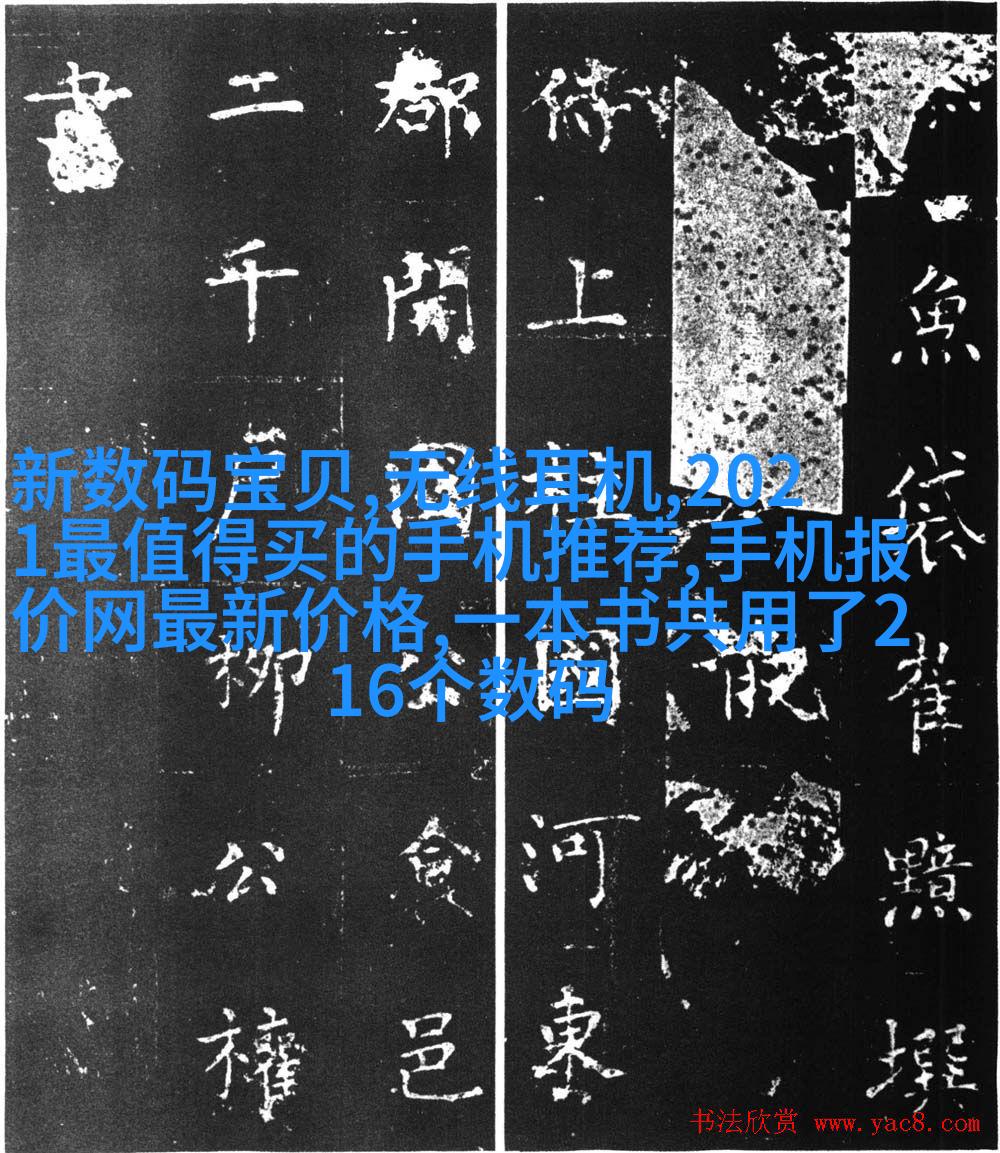 魚袋崔黯撰
觀
侍上柱國河東
都開國公食邑
二千戶柳公權
書
新数码宝贝,无线耳机,202
1最值得买的手机推荐,手机报
价网最新价格,一本书共用了2
16个数码
书法欣赏 www.yac8.com